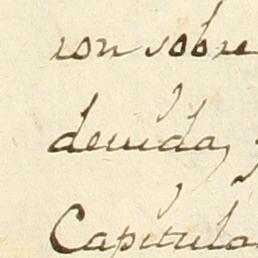 ion sobre
devida,
Capitula